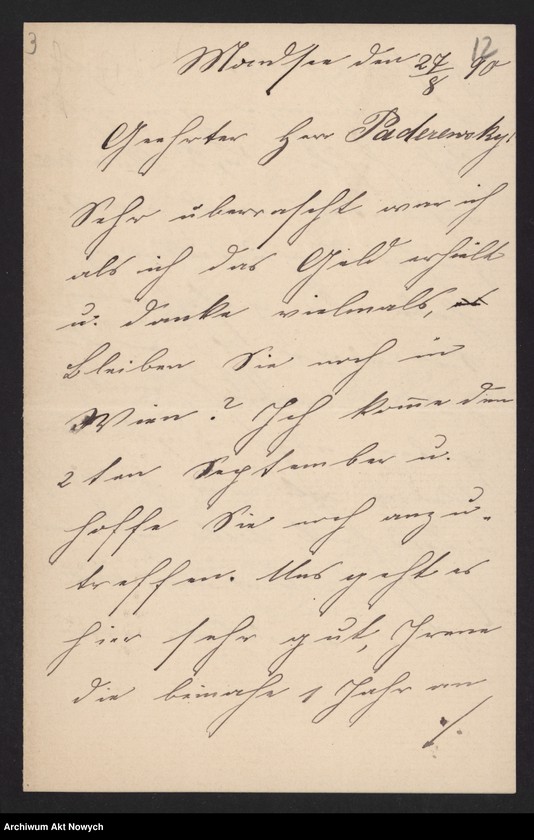 3
12
Mondsee den 27/8 90
Geehrter Herr Paderewsky!
Sehr überrascht war ich
als ich das Geld erhielt
u. danke vielmals,
Bleiben Sie noch in
Wien? Ich kom̅e den
2ten September u.
hoffe Sie noch anzu-
treffen. Uns geht es
hier sehr gut, Irene
die beinahe 1 Jahr an
./.
Archiwum Akt Nowych